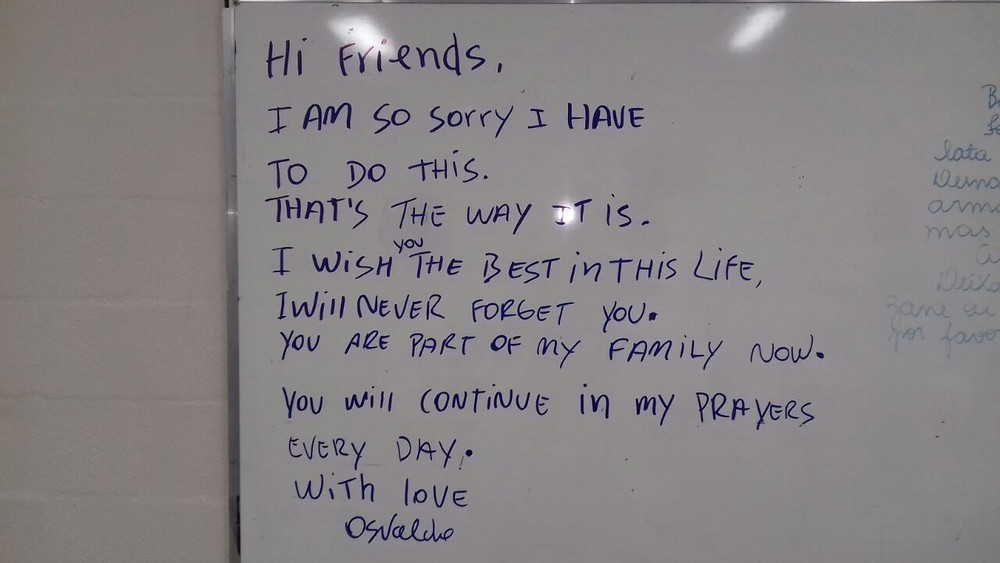 Hi Friends,
I AM SO SORRY I HAVE
TO DO THIS.
THAT'S THE WAY IT is.
I WISH you THE BEST in THIS LIFE,
I Will NEVER FORGET YOU.
YOU ARE PART OF MY FAMILY NOW.
YOU will CONTINUE in my PRAYERS
EVERY DAY.
WITH lOVE
Osvaldo
lata
mas
por favo